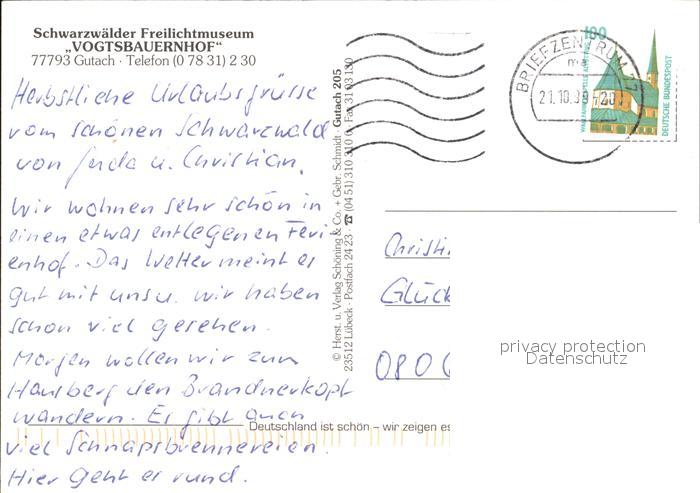 Schwarzwälder Freilichtmuseum
„VOGTSBAUERNHOF“
77793 Gutach · Telefon (0 78 31) 2 30
Herbstliche Urlaubsgrüsse
vom schönen Schwarzwald
von Juda u. Christian.
Wir wohnen sehr schön in
einen etwas entlegenen Feri-
enhof. Das Wetter meint es
gut mit uns u. wir haben
schon viel gesehen.
Morgen wollen wir zum
Hausberg den Brandnerkopf
wandern. Es gibt auch
viel Schnapsbrennereien.
Hier geht es rund.
© Herst. u. Verlag Schöning & Co. + Gebr. Schmidt · Gutach 205
23512 Lübeck · Postfach 24 23 · ☎ (04 51) 310 310
BRIEFZENTRUM 77
21.10.99
100
DEUTSCHE BUNDESPOST
Christi
Glück
080
privacy protection
Datenschutz
Deutschland ist schön – wir zeigen es